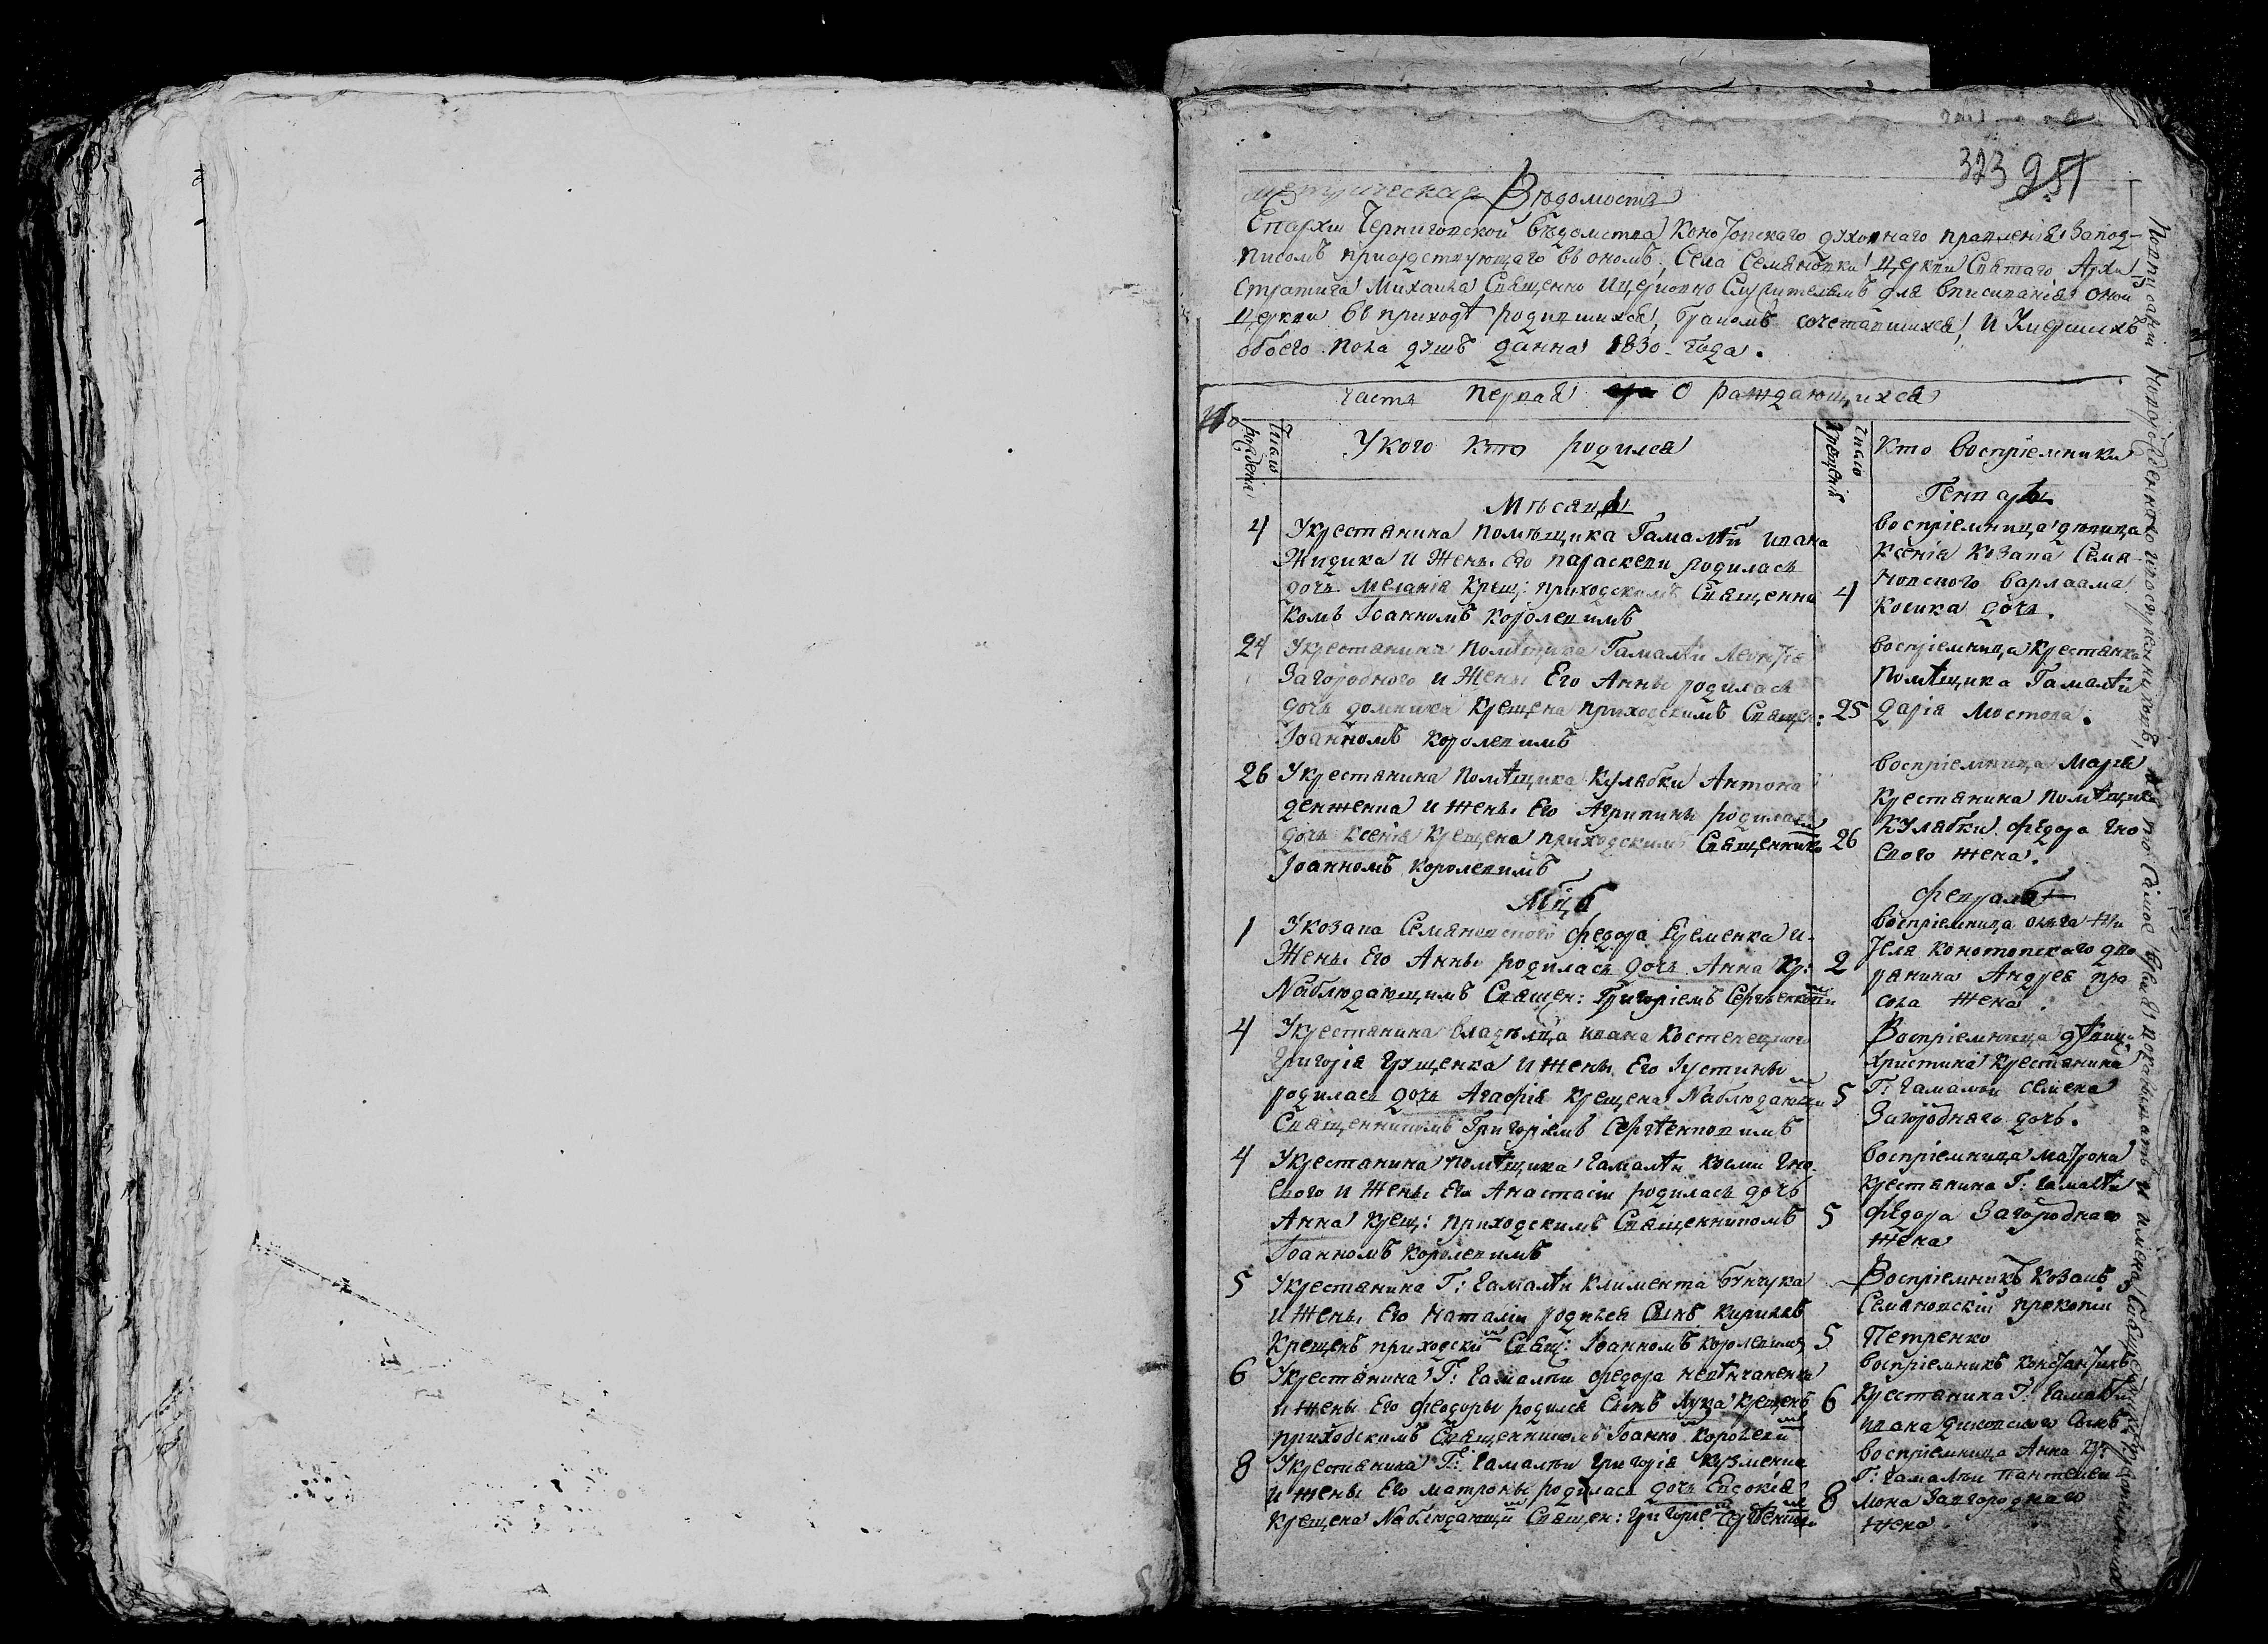 323 251
метрическая Вѣдомость
Епархіи Черниговской вѣдомства Конотопскаго духовнаго правленія Запод-
писомъ присудствующаго въ ономъ, Села Семяновки церкви Святаго Архи
Стратига Михаила Священно ицерковно Служителямъ для вписиванія оной
церкви въ приходѣ родившихся, бракомъ сочетавшихся, и Умершихъ
обоего пола душъ данна 1830 года.
часть первая О раждающихся
Число рожденія
Укого кто родился
Число крещенія
Кто восприемники
Мѣсяцъ
Генваръ
4 Укрестянина помѣщика Гамалѣи ивана
Жидика и Жены Его параскеви родилась
дочь Меланія Крещ: приходскимъ Священни
комъ Іоанномъ Королевимъ
4
восприемница дѣвица
Ксенія Козака Семя-
новского варлаама
Косика дочь.
24 Укрестянина помѣщика Гамалѣи Леонтія
Загородного и Жены Его Анны родилась
дочь домника Крещена приходскимъ Священ:
Іоанномъ Королевимъ
25
восприемница Крестянка
помѣщика Гамалѣи
дарія Мостова.
26 Укрестянина помѣщика Кулябки Антона
и жены Его Агрипины родилась
дочь Ксенія Крещена приходскимъ Священнико
Іоанномъ Королевимъ
26
восприемница Марія
Крестянина помѣщика
Кулябки федора Гно
евого жена.
Мцъ
февраль
1 Укозака Семяновского федора Еременка и
Жены Его Анны родилась дочь Анна Кр:
Наблюдающимъ Священ: Григоріемъ
2
восприемница олга жи
теля конотопскаго дво
ранина Андрея про
сола жена
4 Укрестянина владѣлца ивана
Григорія Грищенка и жены Его Іустины
родилась дочь Агафія Крещена Наблюдающи
Священникомъ Григоріемъ Сергѣенковимъ
5
Восприемница дѣвица
христина Крестянина
Г: Гамалѣи Семена
Загороднаго дочь.
4 Укрестянина помѣщика Гамалѣи Косми Гно
евого и Жены Его Анастасіи родилась дочь
Анна Крещ: приходскимъ Священникомъ
Іоанномъ Королевимъ
5
восприемница матрона
Крестянина Г: Гамалѣи
федора Загороднаго
жена
5 Укрестянина Г: Гамалѣи Климента Бунчука
и Жены Его Наталіи родился Сынъ Кириллъ
Крещенъ приходски Свящ: Іоанномъ Королевимъ
5
Восприемникъ Козакъ
Семяновскій прокопій
Петренко
6 Укрестянина Г: Гамалѣи федора
и жены Его феодоры родился Сынъ Лука Крещенъ
приходскимъ Священникомъ Іоанно Королеви
6
восприемникъ Константинъ
Крестянина Г: Гамалѣи
ивана Сынъ
8 Укрестянина Г: Гамалѣи Григорія Кузменка
и жены Его матроны родилась дочь Евдокія
Крещена Наблюдающи Священ: Григорие
8
восприемница Анна кр:
Г: Гамалѣи пантелей
мона Загороднаго
жена